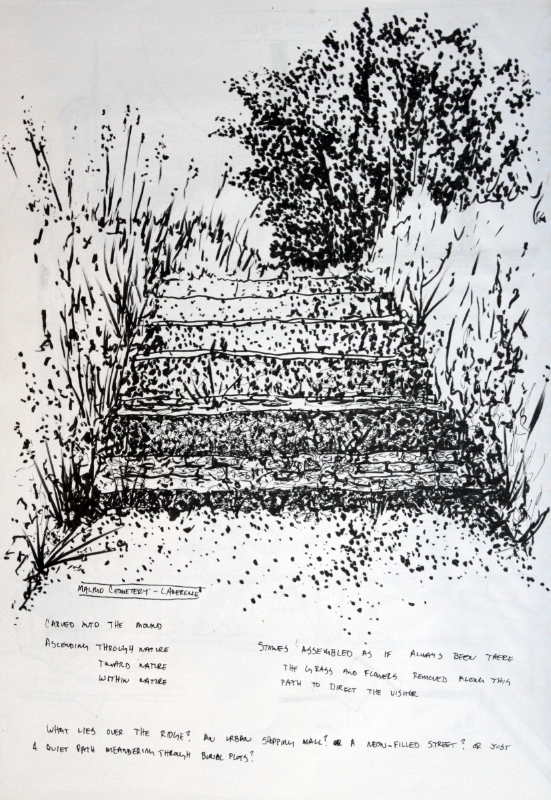 MALMO CEMETERY - LAWERENCE
CARVED INTO THE MOUND
ASCENDING THROUGH NATURE
TOWARD NATURE
WITHIN NATURE
STONES ASSEMBLED AS IF ALWAYS BEEN THERE
THE GRASS AND FLOWERS REMOVED ALONG THIS
PATH TO DIRECT THE VISITOR
WHAT LIES OVER THE RIDGE? AN URBAN SHOPPING MALL? OR A NEON-FILLED STREET? OR JUST
A QUIET PATH MEANDERING THROUGH BURIAL PLOTS?